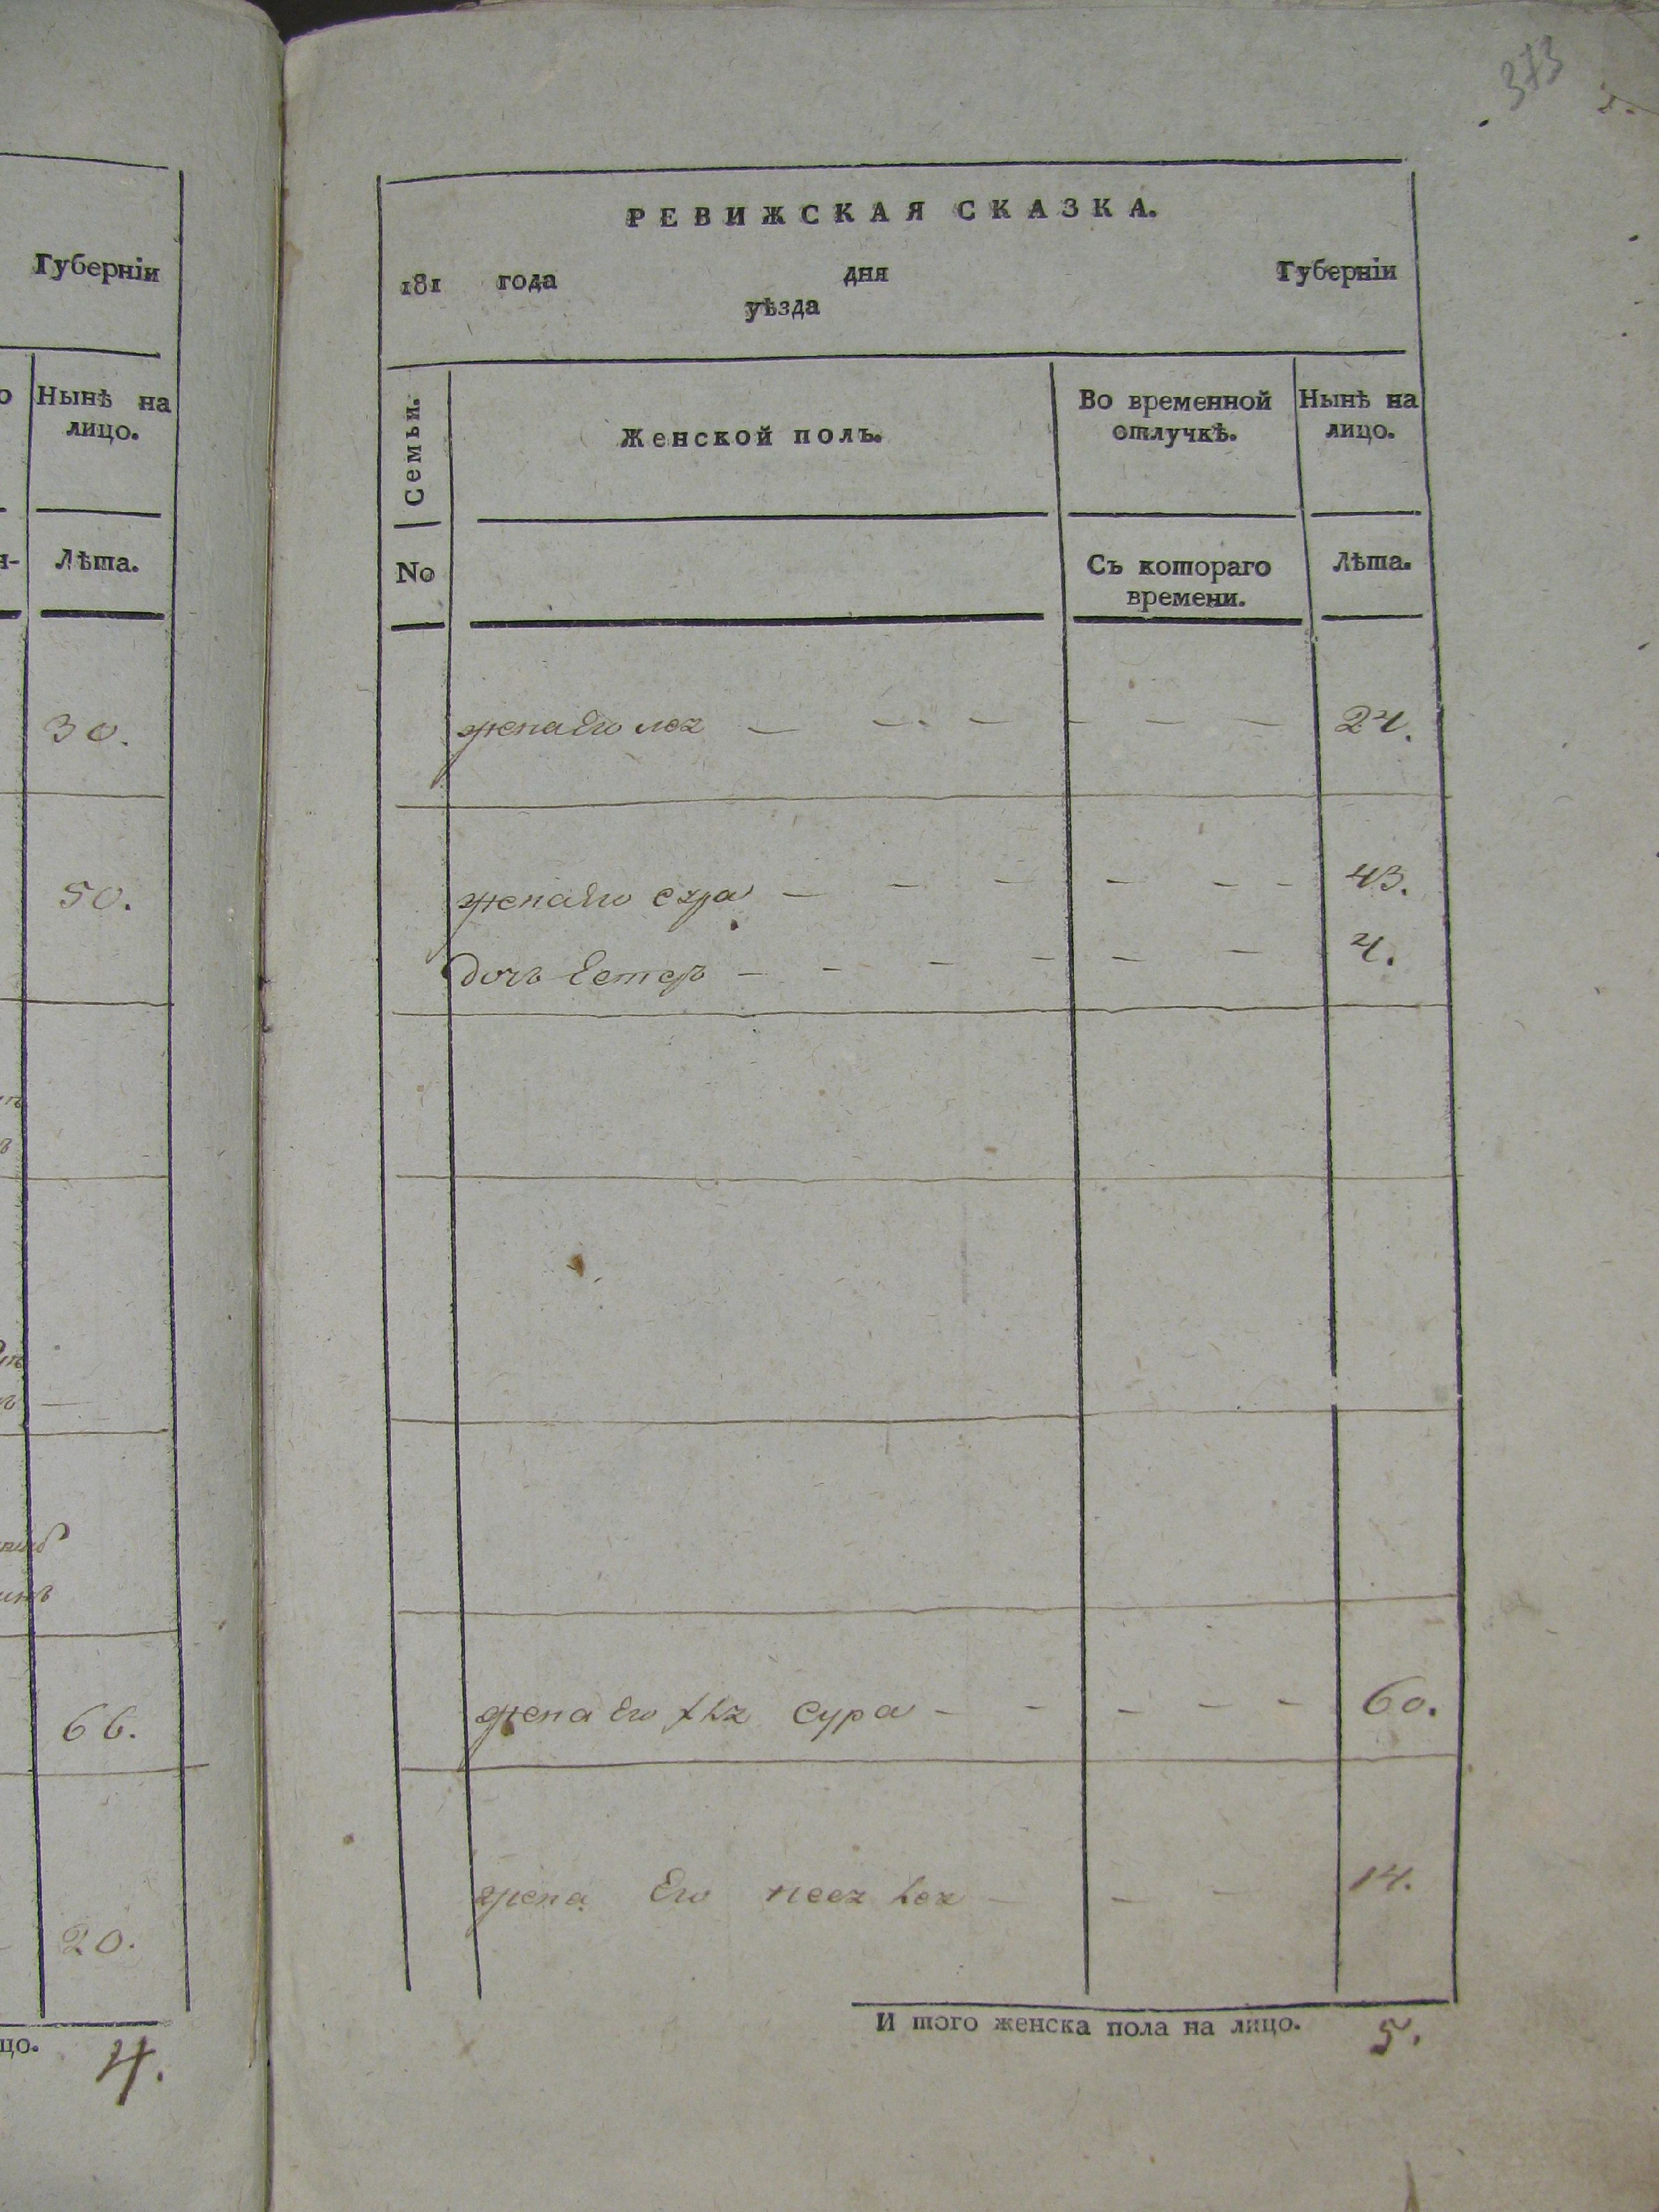 Губерніи
Нынѣ на
лицо.
Лѣта.
30.
50.
66.
20.
цо. 4.
373
РЕВИЖСКАЯ СКАЗКА.
181 года дня Губерніи
уѣзда
Семьи.
Женской полъ.
Во временной
отлучкѣ.
Нынѣ на
лицо.
No
Съ котораго
времени.
Лѣта.
жена его лея — — — — — — 24.
жена его сура — — — — — — 43.
дочь Естеръ — — — — — — 4.
жена его сура — — — — — 60.
жена Его — — — 14.
И того женска пола на лицо. 5.